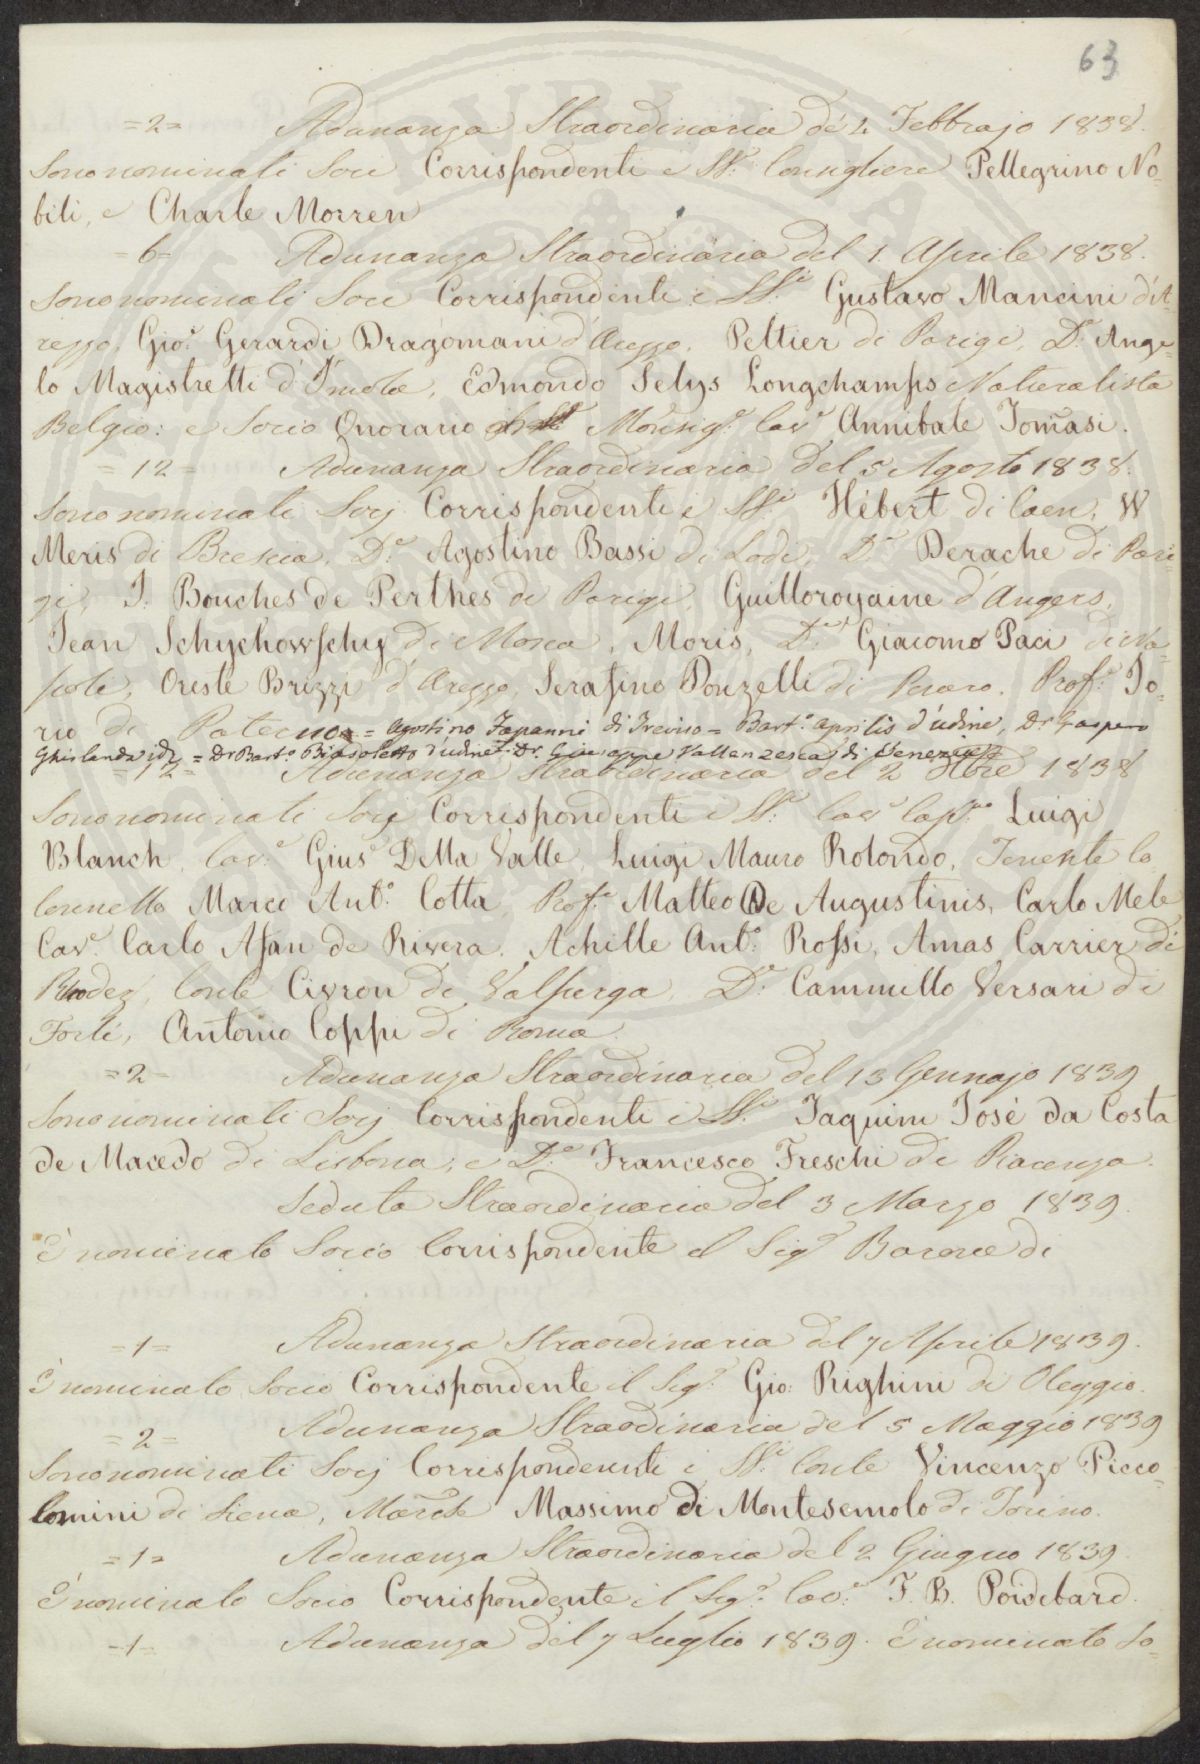 63
=2= Adunanza Straordinaria de' 4 Febbrajo 1838.
Sono nominati Soci Corrispondenti i SS.ri Consigliere Pellegrino No=
bili, e Charle Morren
=6= Adunanza Straordinaria del 1 Aprile 1838.
Sono nominati Soci Corrispondenti i SS.ri Gustavo Mancini d'A=
rezzo, Gio. Gerardi Dragomani d'Arezzo, Peltier di Parigi, D.r Ange=
lo Magistretti d'Imola, Edmondo Selys Longchamps Naturalista
Belgio: e Socio Onorario Monsig.r Cav.r Annibale Tomasi.
=12= Adunanza Straordinaria del 5 Agosto 1838.
Sono nominati Socj Corrispondenti i SS.ri Hébert di Caen, W
Meris di Brescia, D.r Agostino Bassi di Lodi, D.r Derache di Pari=
gi, J. Bouches de Perthes di Parigi, Guilloroyaine d'Angers,
Jean Schychowschy di Mosca, Moris, D.r Giacomo Paci di Na=
poli, Oreste Brizzi d'Arezzo, Serafino Ponzelli di Pesaro. Prof.r Io=
rio di Paterno = Agostino Fapanni di Treviso = Bart.o Aprilis d'udine, Dr. Gaspero
Ghirlanda idz = Dr Bart.o Biasoletto d'udine = Dr. Giuseppe Vallenzasca di Venezia
=12= Adunanza Straordinaria del 2 Xbre 1838
Sono nominati Socj Corrispondenti i SS.ri Cav. Cap.no Luigi
Blanch, Cav.r Gius.e Della Valle, Luigi Mauro Rotondo, Tenente Co=
lonnello Marc Ant.o Cotta, Prof.r Matteo De Augustinis, Carlo Mele
Cav.e Carlo Afan de Rivera, Achille Ant.o Rossi, Amas Carrier di
Rhodez, Conte Civron di Valperga, D.r Cammillo Versari di
Forlì, Antonio Coppi di Roma.
=2= Adunanza Straordinaria del 13 Gennajo 1839
Sono nominati Socj Corrispondenti i SS.ri Jaquim José da Costa
de Macedo di Lisbona, e D.r Francesco Freschi di Piacenza.
Seduta Straordinaria del 3 Marzo 1839.
È nominato Socio Corrispondente il Sig.r Barone di
=1= Adunanza Straordinaria del 7 Aprile 1839.
È nominato Socio Corrispondente il Sig.r Gio: Righini di Oleggio.
=2= Adunanza Straordinaria del 5 Maggio 1839
Sono nominati Socj Corrispondenti i SS.ri Conte Vincenzo Picco=
lomini di Siena, March.e Massimo di Montesemolo di Torino.
=1= Adunanza Straordinaria del 2 Giugno 1839.
È nominato Socio Corrispondente il Sig.r Cav.r F. B. Poidebard.
=1= Adunanza del 7 Luglio 1839. È nominato So=